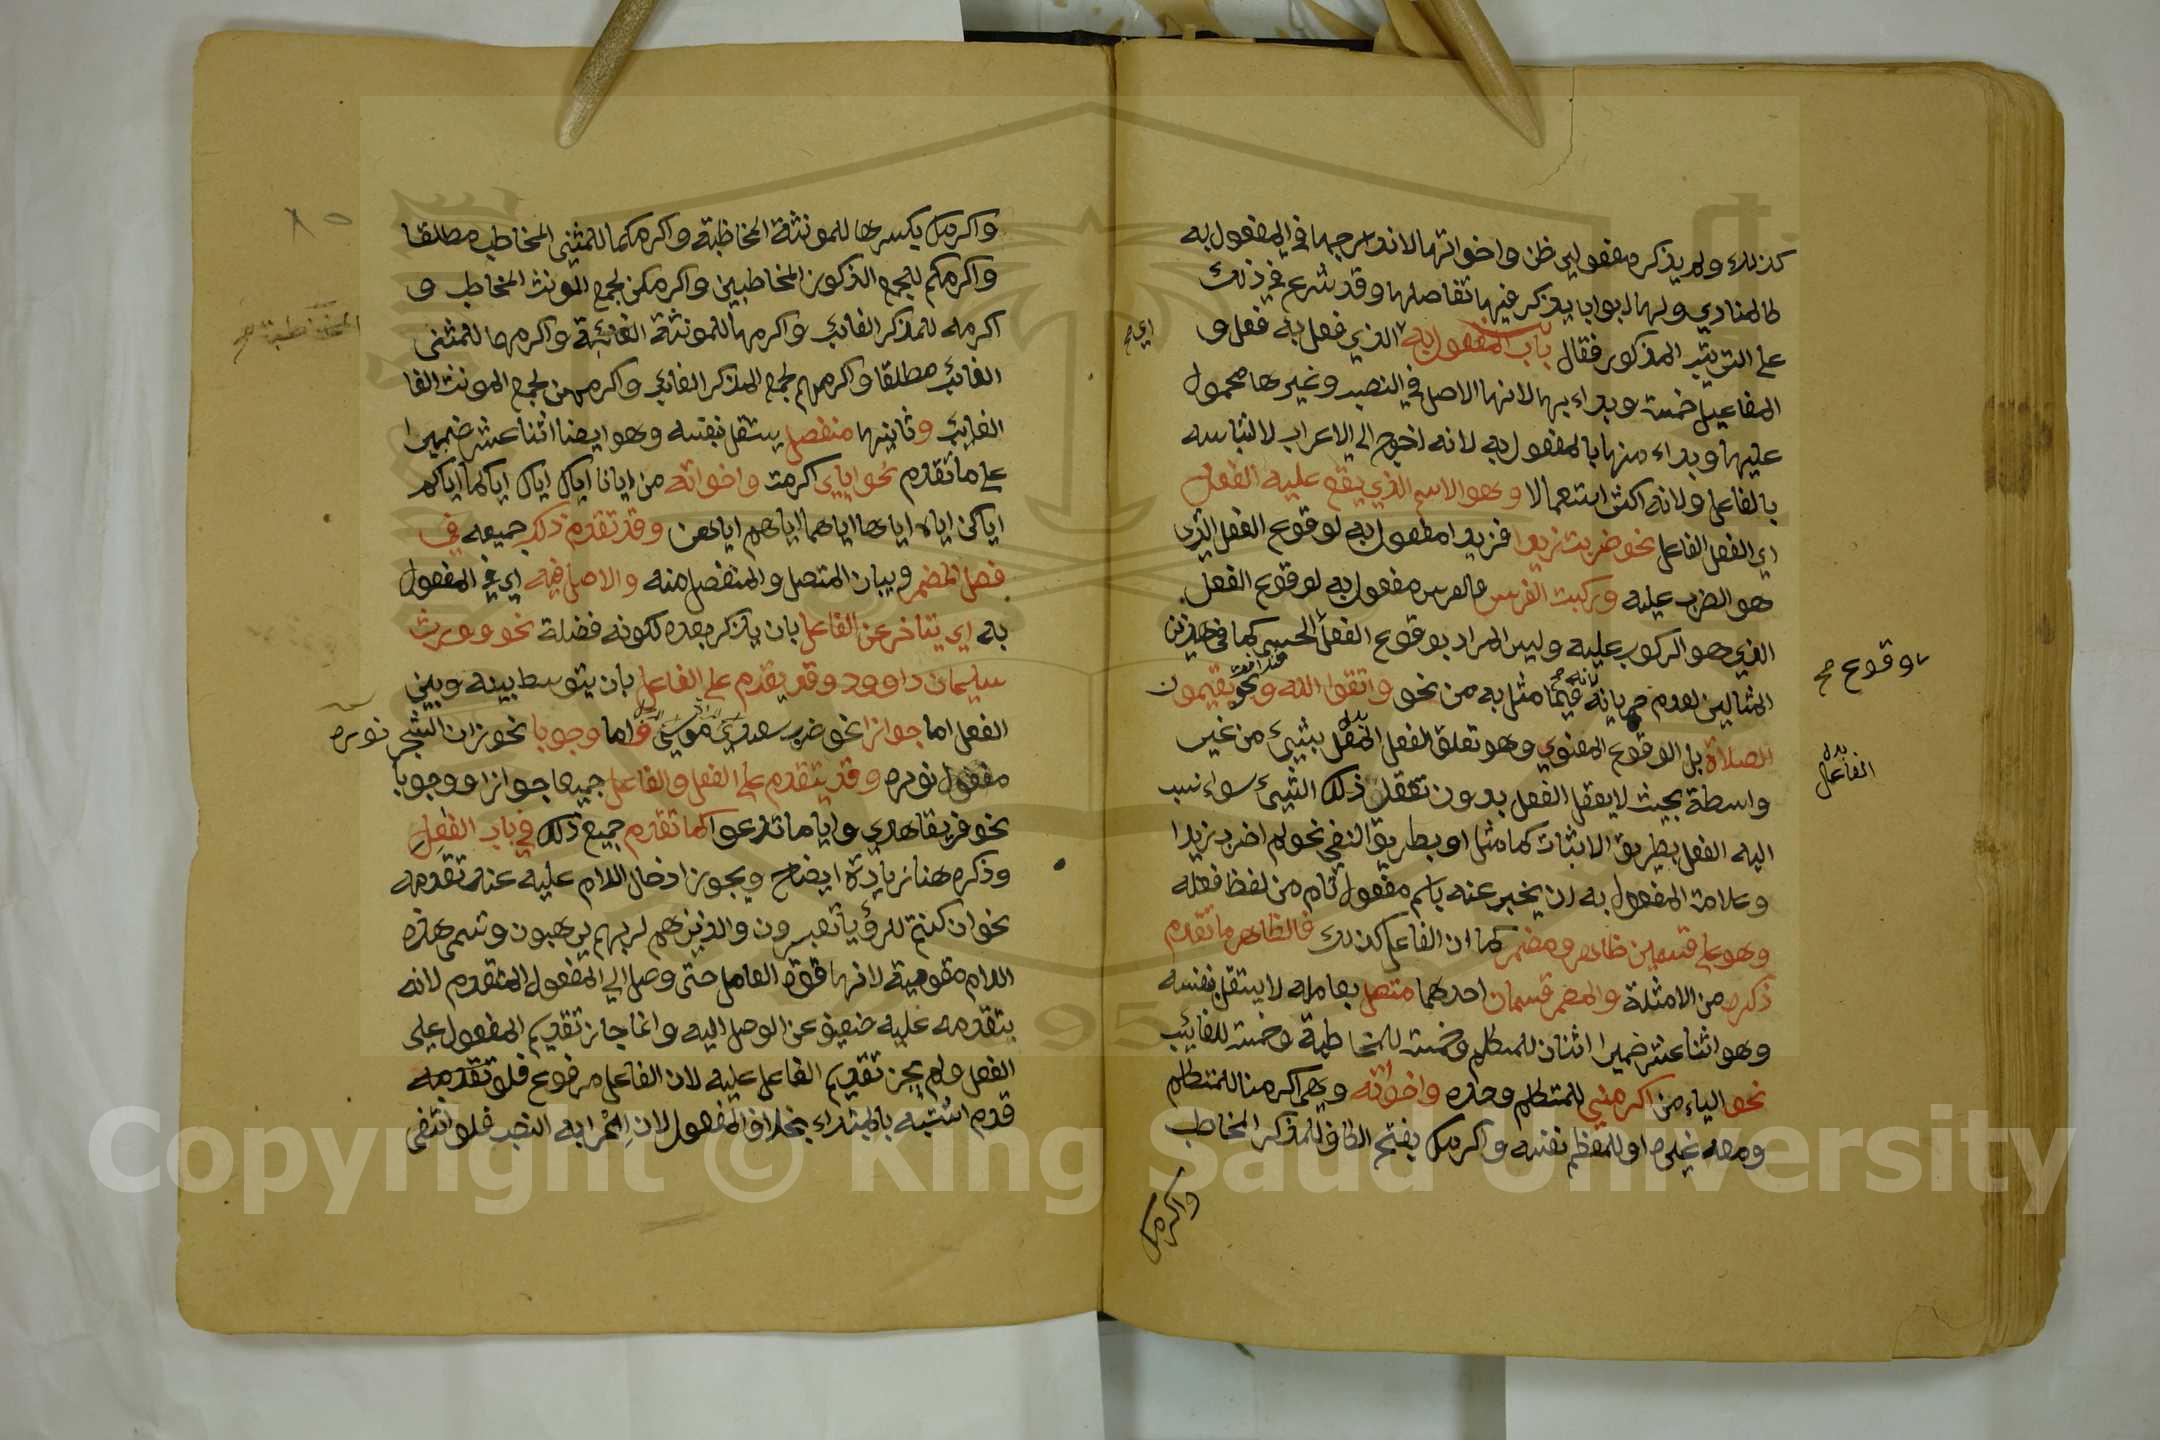 كذلك ولم يذكر مفعولي ظن واخواتها لاندراجها في المفعول به
كالمنادي ولها ابوابا يذكر فيها تفاصلها وقد شرع في ذلك
على الترتيب المذكور فقال باب المفعول به الذي فعل به فعل و
اي صح
المفاعيل خمسة وبداء بها لانها الاصل في النصب وغيرها محمول
عليها وبداء منها بالمفعول به لانه احوج الى الاعراب لالتباسه
بالفاعل ولانه اكثر استعمالا وهو الاسم الذي يقع عليه الفعل
اي الفعل الفاعل نحو ضربت زيدا فزيدا مفعول به لوقوع الفعل الذي
هو الضرب عليه وركبت الفرس فالفرس مفعول به لوقوع الفعل
الذي هو الركوب عليه وليس المراد بوقوع الفعل الحسي كما في هذين
وقوع صح
المثالين لعدم جريانه فيما مثل به من نحو واتقوا الله ونحو يقيمون
الصلاة بل الوقوع المعنوي وهو تعلق الفعل بشيئ من غير
بدل الفاعل
واسطة بحيث لا يعقل الفعل بدون تعقل ذلك الشيئ سواء نسب
اليه الفعل بطريق الاثبات كما مثل او بطريق النفي نحو لم اضرب زيدا
وعلامة المفعول به ان يخبر عنه باسم مفعول تام من لفظ فعله
وهو على قسمين ظاهر ومضمر كما ان الفاعل كذلك فالظاهر ما تقدم
ذكره من الامثلة والمضمر قسمان احدهما متصل بعامله لا يستقل بنفسه
وهو اثنا عشر ضميرا اثنان للمتكلم وخمسة للمخاطبة وخمسة للغايب
نحو الياء من اكرمني للمتكلم وحده واخوته وهي اكرمنا للمتكلم
ومعه غيره او للمعظم نفسه واكرمك بفتح الكاف للمذكر المخاطب
واكرمك
٨٥
واكرمك بكسرها للمونثة المخاطبة واكرمكما للمثنى المخاطب مطلقا
واكرمكم لجمع الذكور المخاطبين واكرمكن لجمع المونث المخاطب و
اكرمه للمذكر الغايب واكرمها للمونثة الغائبة واكرمهما للمثنى
الغايب مطلقا واكرمهم لجمع المذكر الغايب واكرمهن لجمع المونث الغا
الغايب وثانيها منفصل يستقل بنفسه وهو ايضا اثنا عشر ضميرا
على ما تقدم نحو اياي اكرمت واخواته من ايانا اياك اياك اياكما اياكم
اياكن اياه اياها اياهما اياهم اياهن وقد تقدم ذلك جميعه في
فصل المضمر وبيان المتصل والمنفصل منه والاصل فيه اي في المفعول
به اي يتاخر عن الفاعل بان يذكر بعده لكونه فضلة نحو وورث
سليمان داوود وقد يقدم على الفاعل بان يتوسط بينه وبين
الفعل اما جوازا نحو ضرب سعدي موسى واما وجوبا نحو زان الشجر نوره
مفعول نوره وقد يتقدم على الفعل والفاعل جميعا جوازا ووجوبا
نحو فريقا هدي واياما تدعوا كما تقدم جميع ذلك في باب الفعل
وذكره هنا زيادة ايضاح ويجوز ادخال اللام عليه عند تقدمه
نحو ان كنتم للرؤيا تعبرون والذين هم لربهم يرهبون وتسمى هذه
اللام مقومية لانها قوة العامل حتى وصل الى المفعول المتقدم لانه
بتقدمه عليه ضعيف عن الوصل اليه وانما جاز تقديم المفعول على
الفعل ولم يجز تقديم الفاعل عليه لان الفاعل مرفوع فلو تقدمه
قدم اشتبه بالمبتداء بخلاف المفعول لان اعرابه النصب فلو انتفى
Copyright © King Saud University